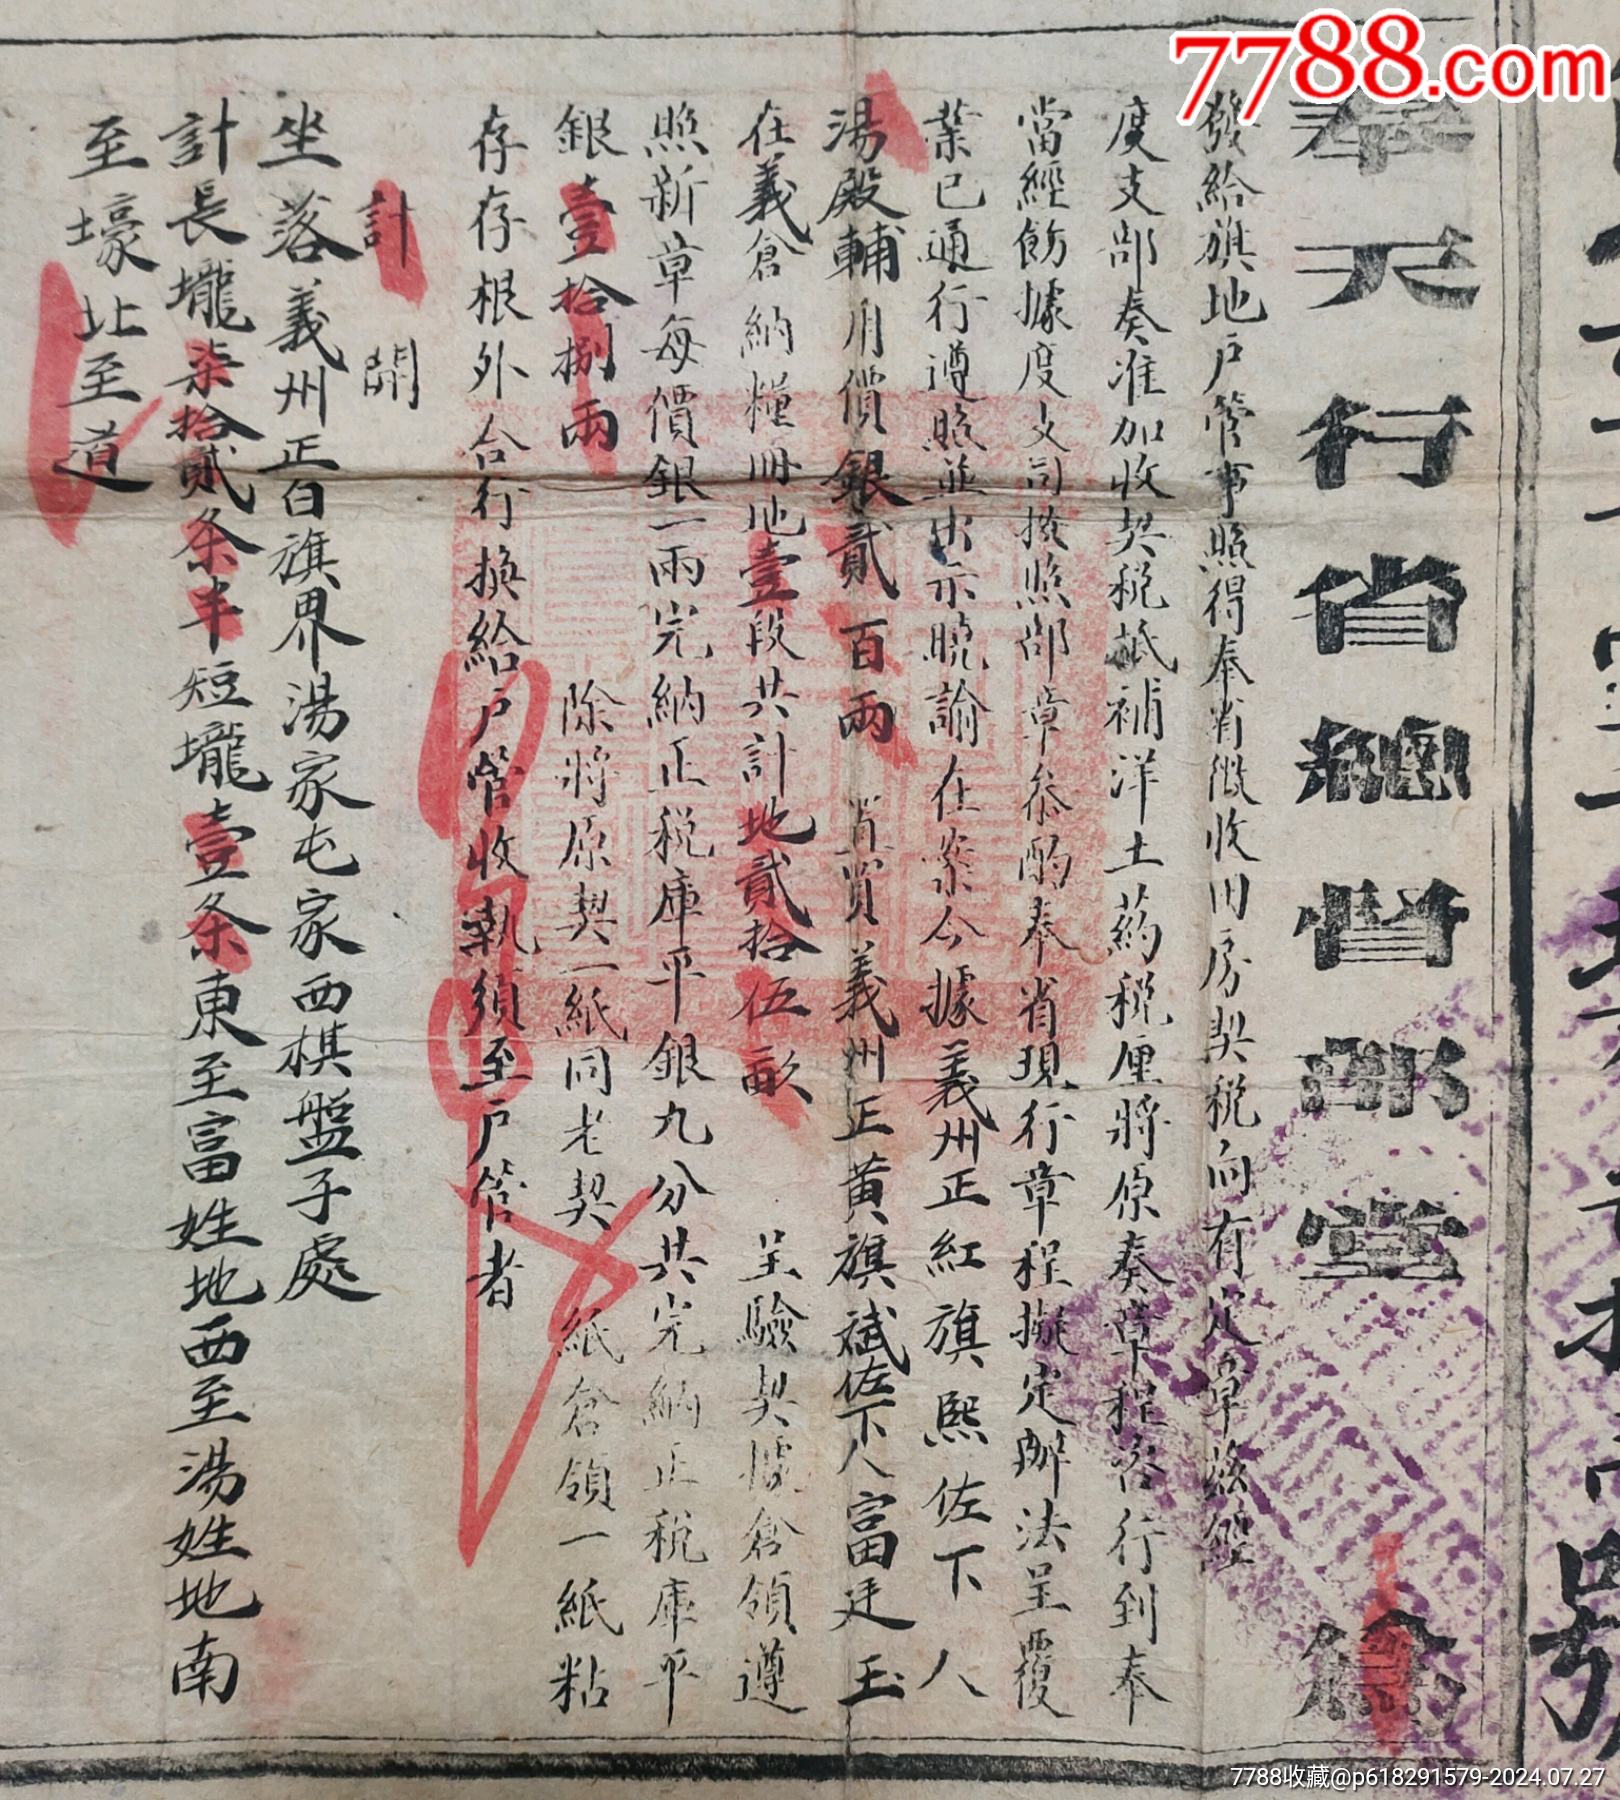 7788.com
奉天行省總督部堂
發給旗地戶管事照得奉省徵收田房契税向有定章兹經
度支部奏准加收契税抵補洋土药税厘將原奏章程咨行到奉
當經飭據度支司按照部章叅酌奉省現行章程擬定辦法呈覆
業已通行遵照並出示曉諭在案今據義州正紅旗熙佐下人
湯殿輔用價銀貳百兩 買義州正黄旗斌佐下人富廷玉
在義倉納糧冊地壹段共計地貳拾伍畝 呈驗契據倉領遵
照新章每價銀一兩完納正税庫平銀九分共完納正税庫平
銀壹拾捌兩 除將原契一紙同老契 紙倉領一紙粘
存存根外合行換給戶管收執須至戶管者
計開
坐落義州正白旗界湯家屯家西棋盤子處
計長壠柒拾貳条半短壠壹条東至富姓地西至湯姓地南
至壕北至道
號
7788收藏@p618291579-2024.07.27